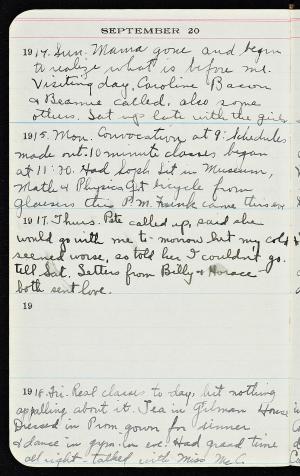 SEPTEMBER 20
1914. Sun. Mama gone and begin
to realize what is before me.
Visiting day. Caroline Bacon
& Beanie called, also some
others. Sat up late with the girls
1915. Mon. Convocation at 9. Schedules
made out. 10 minute classes began
at 11:30. Had Soph Lit in Museum,
Math & Physics. Got bicycle from
Glaesers this P.M. Frank came this eve
1917. Thurs. Pete called up, said she
would go with me to-morrow but my cold
seemed worse, so told her I couldn't go.
till Sat. Letters from Billy & Horace
both sent love.
19
1918. Fri. Real classes to day, but nothing
appalling about it. Tea in Gilman House
Dressed in Prom. gown for dinner
& dance in gym. in eve. Had grand time
all right - talked with Miss McC.